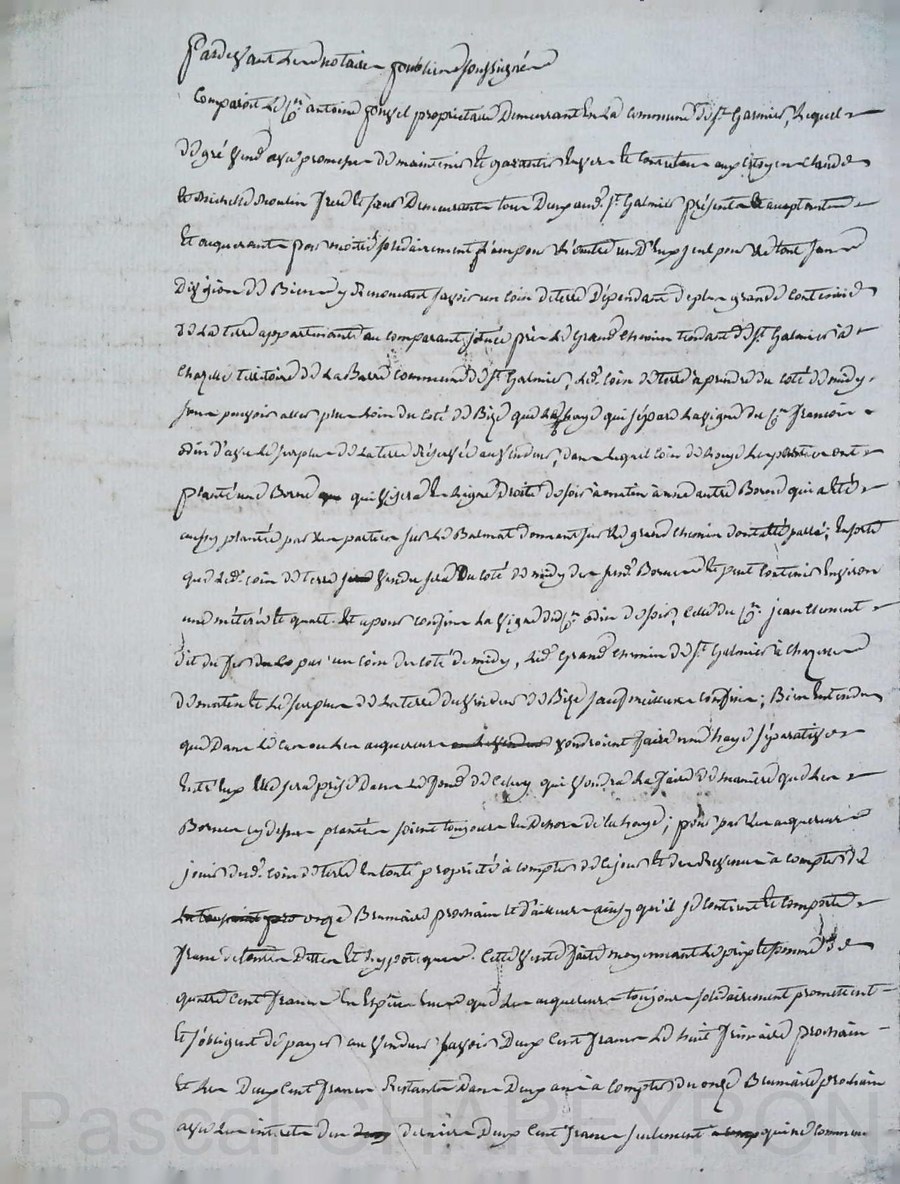 Pardevant les notaires publics soussignés
Comparoit le Cn. antoine fonvel propriétaire Demeurant En La Commune de St. Galmier, Lequel
de gré vend avec promesse de maintenir Et garantir Envers Et Contre tous aux Citoyens Claude
Et Michelle Moulin frere Et sœur Demeurants tous Deux aud. St. Galmier présents Et acceptants
Et acquerants par moitié solidairement l'un pour L'autre un D'Eux seul pour Le tout sans
Division de Biens y Renonceant savoir un coin de terre Dépendant de plus grande Contenüe
de La terre appartenante au comparant, située près Le Grand Chemin tendant de St. Galmier à
Chazelle territoire de La Barre Commune de St. Galmier, led. coin de terre à prendre du coté de midy,
sans pouvoir aller plus loin du Coté de Bize que La haye qui sépare La vigne du Cn. francois
odin d'avec Le surplus de La terre Réservée au vendeur, dans lequel coin de haye Les parties ont
planté une Borne qui visera En Ligne Droite de soir à matin à une autre Borne qui a Eté
aussy plantée par Les parties sur Le Balmat donnant sur Le grand chemin dont a Eté parlé; En sorte
que led. coin de terre vendu sera Du Coté de midy des susd. Bornes Et peut Contenir Environ
une méterée Et quart. Et a pour confins La vigne dud. Cn. odin de soir, Celle du Cn. jean Clement
dit du fer par un coin du coté de midy, Led. Grand Chemin de St. Galmier à Chazelle
de matin Et Le surplus de La terre du vendeur de Bize sauf meilleurs confins; Bien Entendu
que Dans Le Cas ou Les acquereurs voudroient faire une haye séparative
Entr'Eux Elle sera prise Dans Le fond de Celuy qui voudra La faire de manière que Les
Bornes cy dessus plantées soient toujours En Dehors de la haye; pour par Les acquereurs
jouir dud. coin de terre En toute propriété à compter de Ce jour Et des Revenus à compter de
onze Brumaire prochain Et d'ailleurs ainsy qu'il se Contient Et comporte
franc de toutes Dettes Et hypoteques. Cette vente faite moyennant Le prix Et somme de
quatre Cent francs En Espèces que Les acquereurs toujours solidairement promettent
Et s'obligent de payer au vendeur savoir Deux Cent francs Le huit frimaire prochain
Et Les Deux Cent francs Restants Dans Deux ans à Compter du onze Brumaire prochain
avec Les interets des derniers Deux Cent francs seulement qui ne commen
Pascal CHAREYRON